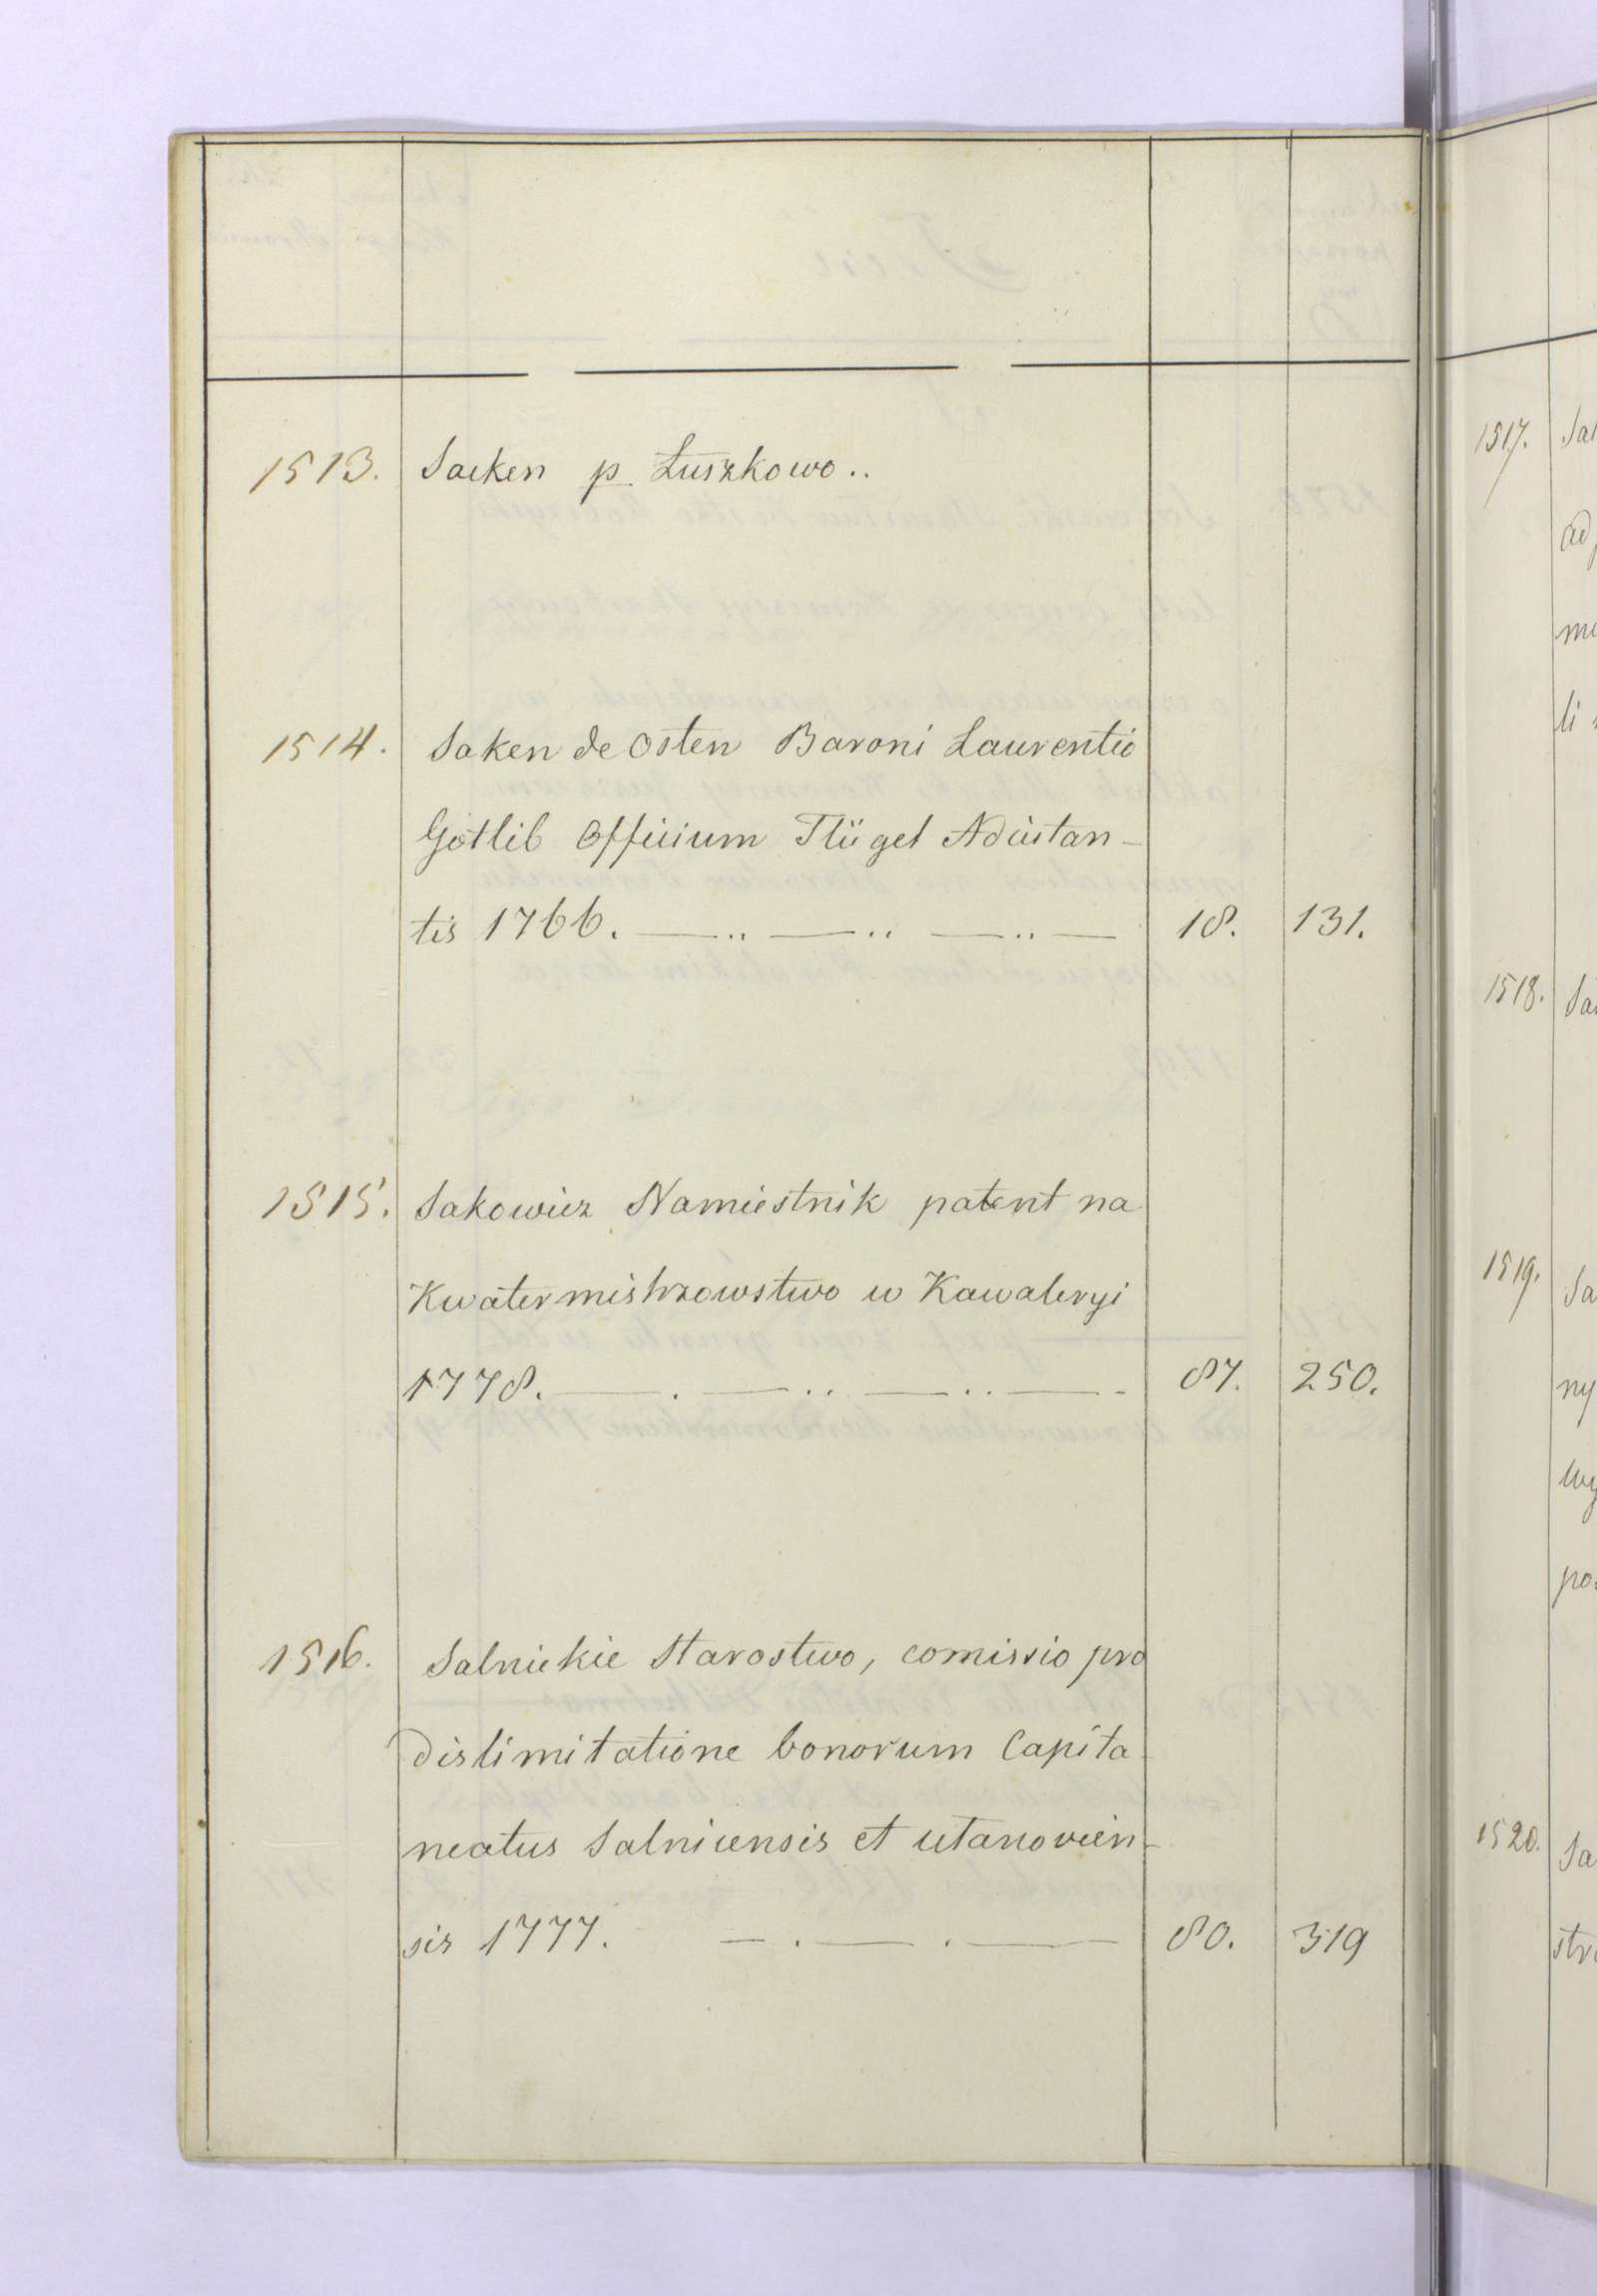 1513. Sacken p. Łuszkowo..
1514. Saken de Osten Baroni Laurentio
Gotlib Officium Flügel Adiutan-
tis 1766. 18. 131.
1515. Sakowicz Namiestnik patent na
Kwatermistrzowstwo w Kawaleryi
1778. 87. 250.
1516. Salnickie Starostwo, comissio pro
dislimitatione bonorum Capita-
neatus Salnicensis et
sis 1777. 80. 319
1517. Sa
ad
li
1518. Sa
1519. Sa
ny
wy
po
1520. Sa